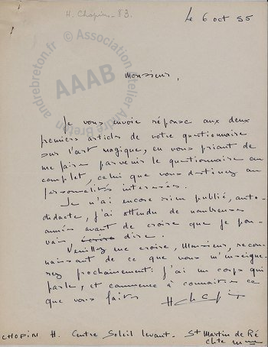 H. Chopin. 53.
© Association Atelier André Breton
andrebreton.fr
AAAB
Le 6 oct 55
Monsieur,
Je vous envoie réponse aux deux
premiers articles de votre questionnaire
sur l'art magique, en vous priant de
me faire parvenir le questionnaire au
complet, celui que vous destinez au
personnalités intéressées.
Je n'ai encore rien publié, auto-
didacte, j'ai attendu de nombreuses
années avant de croire que je pou-
vais dire.
Veuillez me croire, Monsieur, recon-
naissant de ce que vous m'enseigne-
rez prochainement: j'ai un corps qui
parle, et commence à connaître ce
que vous faites
H Chopin
CHOPIN H. Centre Soleil Levant. St Martin de Ré